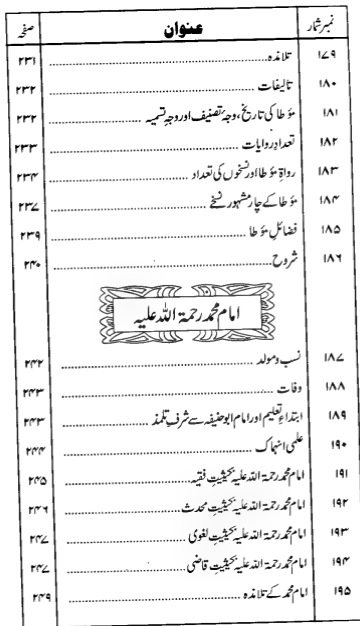 نمبر شمار عنوان صفحہ
۱۷۹ تلامذہ ۲۳۱
۱۸۰ تالیفات ۲۳۲
۱۸۱ مؤطا کی تاریخ، وجۂ تصنیف اور وجۂ تسمیہ ۲۳۲
۱۸۲ تعدادِ روایات ۲۳۳
۱۸۳ رواۃِ مؤطا اور نسخوں کی تعداد ۲۳۴
۱۸۴ مؤطا کے چار مشہور نسخے ۲۳۷
۱۸۵ فضائلِ مؤطا ۲۳۹
۱۸۶ شروح ۲۴۰
امام محمد رحمۃ اللہ علیہ
۱۸۷ نسب و مولد ۲۴۲
۱۸۸ وفات ۲۴۳
۱۸۹ ابتداءِ تعلیم اور امام ابوحنیفہ سے شرفِ تلمذ ۲۴۳
۱۹۰ علمی انہماک ۲۴۴
۱۹۱ امام محمد رحمۃ اللہ علیہ بحیثیتِ فقیہ ۲۴۵
۱۹۲ امام محمد رحمۃ اللہ علیہ بحیثیتِ محدث ۲۴۶
۱۹۳ امام محمد رحمۃ اللہ علیہ بحیثیتِ لغوی ۲۴۷
۱۹۴ امام محمد رحمۃ اللہ علیہ بحیثیتِ قاضی ۲۴۷
۱۹۵ امام محمد کے تلامذہ ۲۴۹